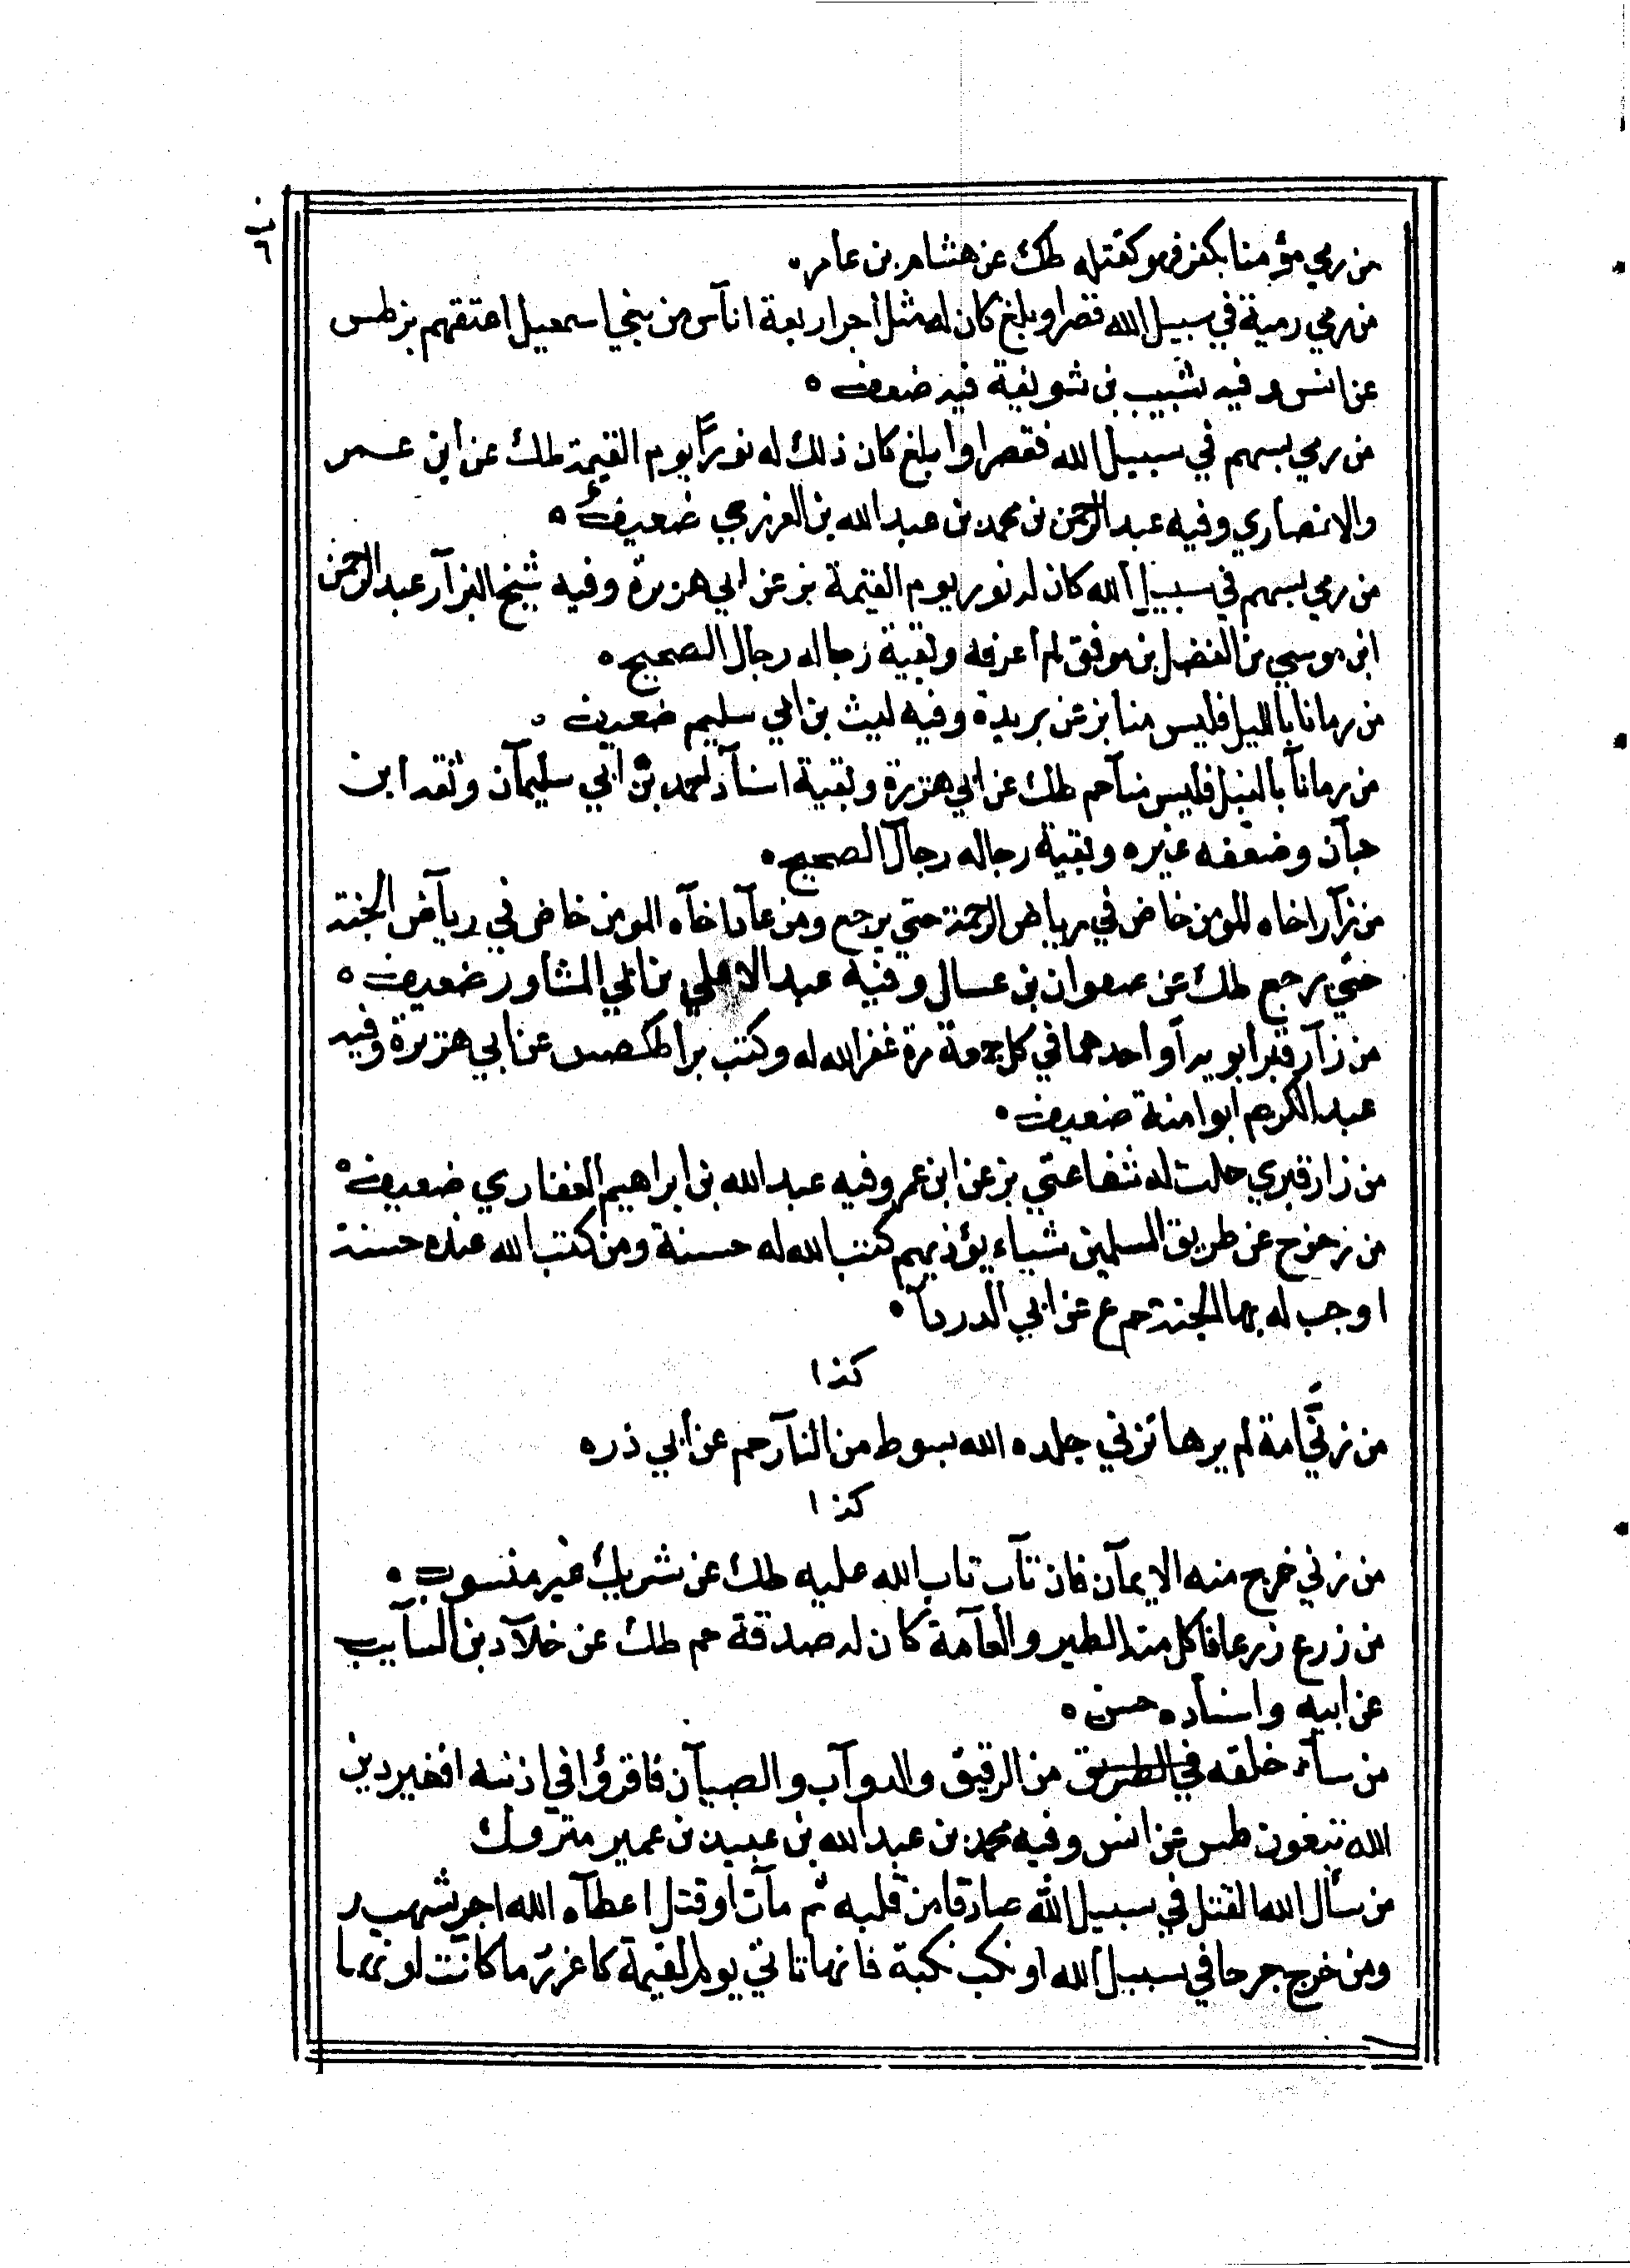 من رمي مؤمنا بكفر فهو كقتله طك عن هشام بن عامر ه
من رمي رمية في سبيل الله قصر او بلغ كان له مثل أجر اربعة اناس من بني اسمعيل اعتقهم بز طس
عن انس و فيه شبيب بن فيه ضعف ه
من رمي بسهم في سبيل الله فقصر او أبلغ كان ذلك له نوراً يوم القيمة طك عن أبن عمر
والانصاري وفيه عبد الرحمن بن محمد بن عبد الله بن العزرمي ضعيف ه
من رمي بسهم في سبيل الله كان له نور يوم القيمة بز عن ابي هريرة وفيه شيخ البزار عبد الرحمن
ابن موسي بن الفضل بن موفق لم أعرفه وبقية رجاله رجال الصحيح ه
من رمانا بالليل فليس منا بز عن بريدة وفيه ليث بن ابي سليم ضعيف ه
من رمانا بالنبل فليس منا حم طك عن ابي هريرة وبقية اسناد لحمد بن ابي سليمان وثقه ابن
حبان وضعفه غيره وبقية رجاله رجال الصحيح ه
من زار اخاه المومن خاض في رياض الرحمة حتي يرجع ومن عاد اخاه المومن خاض في رياض الجنة
حتي يرجع طك عن صفوان بن عسال وفيه عبد الاعلي بن ابي المشاور ضعيف ه
من زار قبر ابويه أو احدهما في كل جمعة مرة غفر الله له وكتب برا طك صس عن ابي هريرة وفيه
عبد الكريم ابو امية ضعيف ه
من زار قبري حلت له شفاعتي بز عن ابن عمر وفيه عبد الله بن ابراهيم الغفاري ضعيف ه
من زحزح عن طريق المسلمين شياء يؤذيهم كتب الله له حسنة ومن كتب الله عنده حسنة
اوجب له بها الجنة حم ع عن ابي الدردآ ه
كذا
من زنّي امة لم يرها تزني جلده الله بسوط من النار حم عن أبي ذر ه
كذا
من زني خرج منه الايمان فان تاب تاب الله عليه طك عن شريك غير منسوب ه
من زرع زرعا فاكل منه الطير والعامة كان له صدقة حم طك عن خلاد بن السايب
عن ابيه واسناده حسن ه
من سآء خلقه في الطريق من الرقيق والدوآب والصبيان فاقرؤا في اذنه افغير دين
الله تبغون طس عن انس وفيه محمد بن عبد الله بن عبيد بن عمير متروك
من سأل الله القتل في سبيل الله صادقا من قلبه ثم مات او قتل اعطاه الله اجر شهيد
ومن خرج جرحا في سبيل الله او نكب نكبة فانها تاتي يوم القيمة كاغزر ما كانت لونها